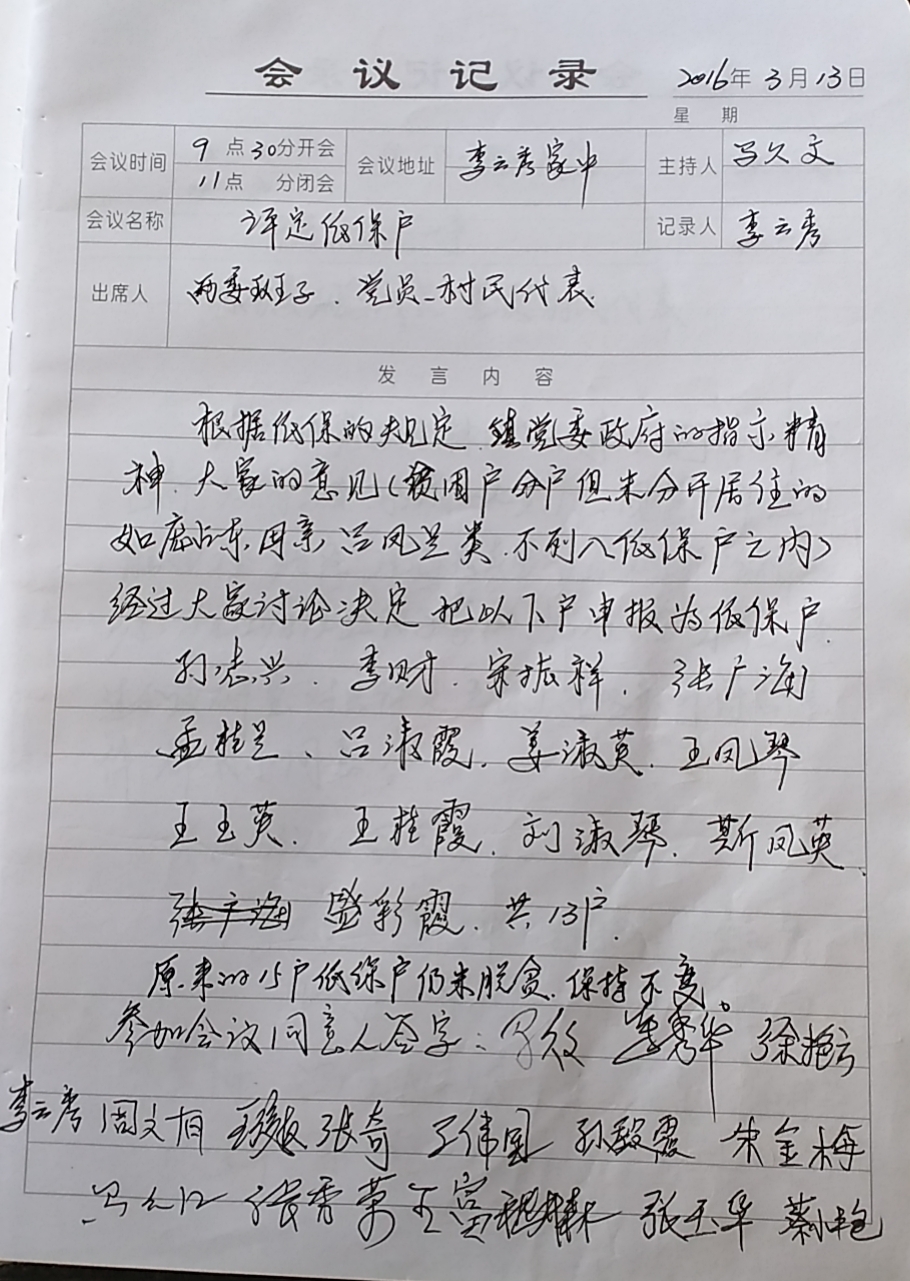 会议记录 2016年3月13日
星期
会议时间 9点30分开会 会议地址 李云秀家中 主持人 马久文
11点 分闭会
会议名称 评定低保户 记录人 李云秀
出席人 两委班子、党员、村民代表
发言内容
根据低保的规定、镇党委政府的指示精
神、大家的意见（贫困户分户但未分开居住的
如 吕凤兰类、不列入低保户之内）
经过大家讨论决定把以下户申报为低保户
孙志兴、李财、宋振祥、张广海
孟桂兰、吕淑霞、姜淑英、王凤琴
王玉英、王桂霞、刘淑琴、靳凤英、
张广海 盛彩霞、共13户、
原来的15户低保户仍未脱贫、保持不变。
参加会议同意人签字： 李秀华 徐艳云
李云秀 周文有 张奇 王伟国 孙殿震 朱金梅
张秀荣 王富 张玉华 蔡小艳